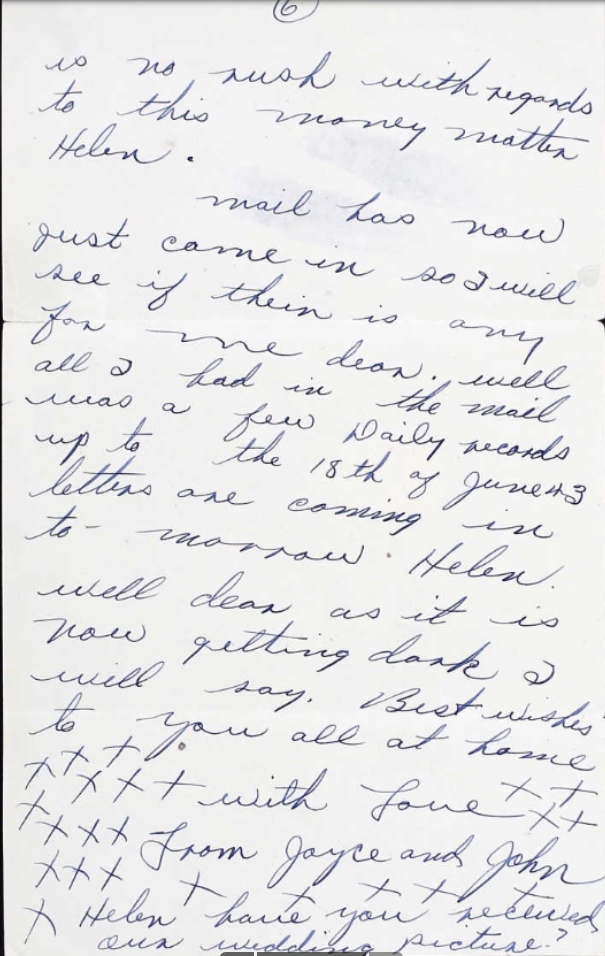 6
is no rush with regards
to this money matter
Helen.
mail has now
just come in so I will
see if thein is any
for me dear. well
all I had in the mail
was a few Daily records
up to the 18th of June 43
letters are coming in
to-morrow. Helen.
well dear as it is
now getting dark I
will say. Best wishes
to you all at home
+ + +
+ + + + with Love + +
+ + +
+ + + + From Joyce and John
+ + + + + + + +
+ Helen have you received
our wedding picture?